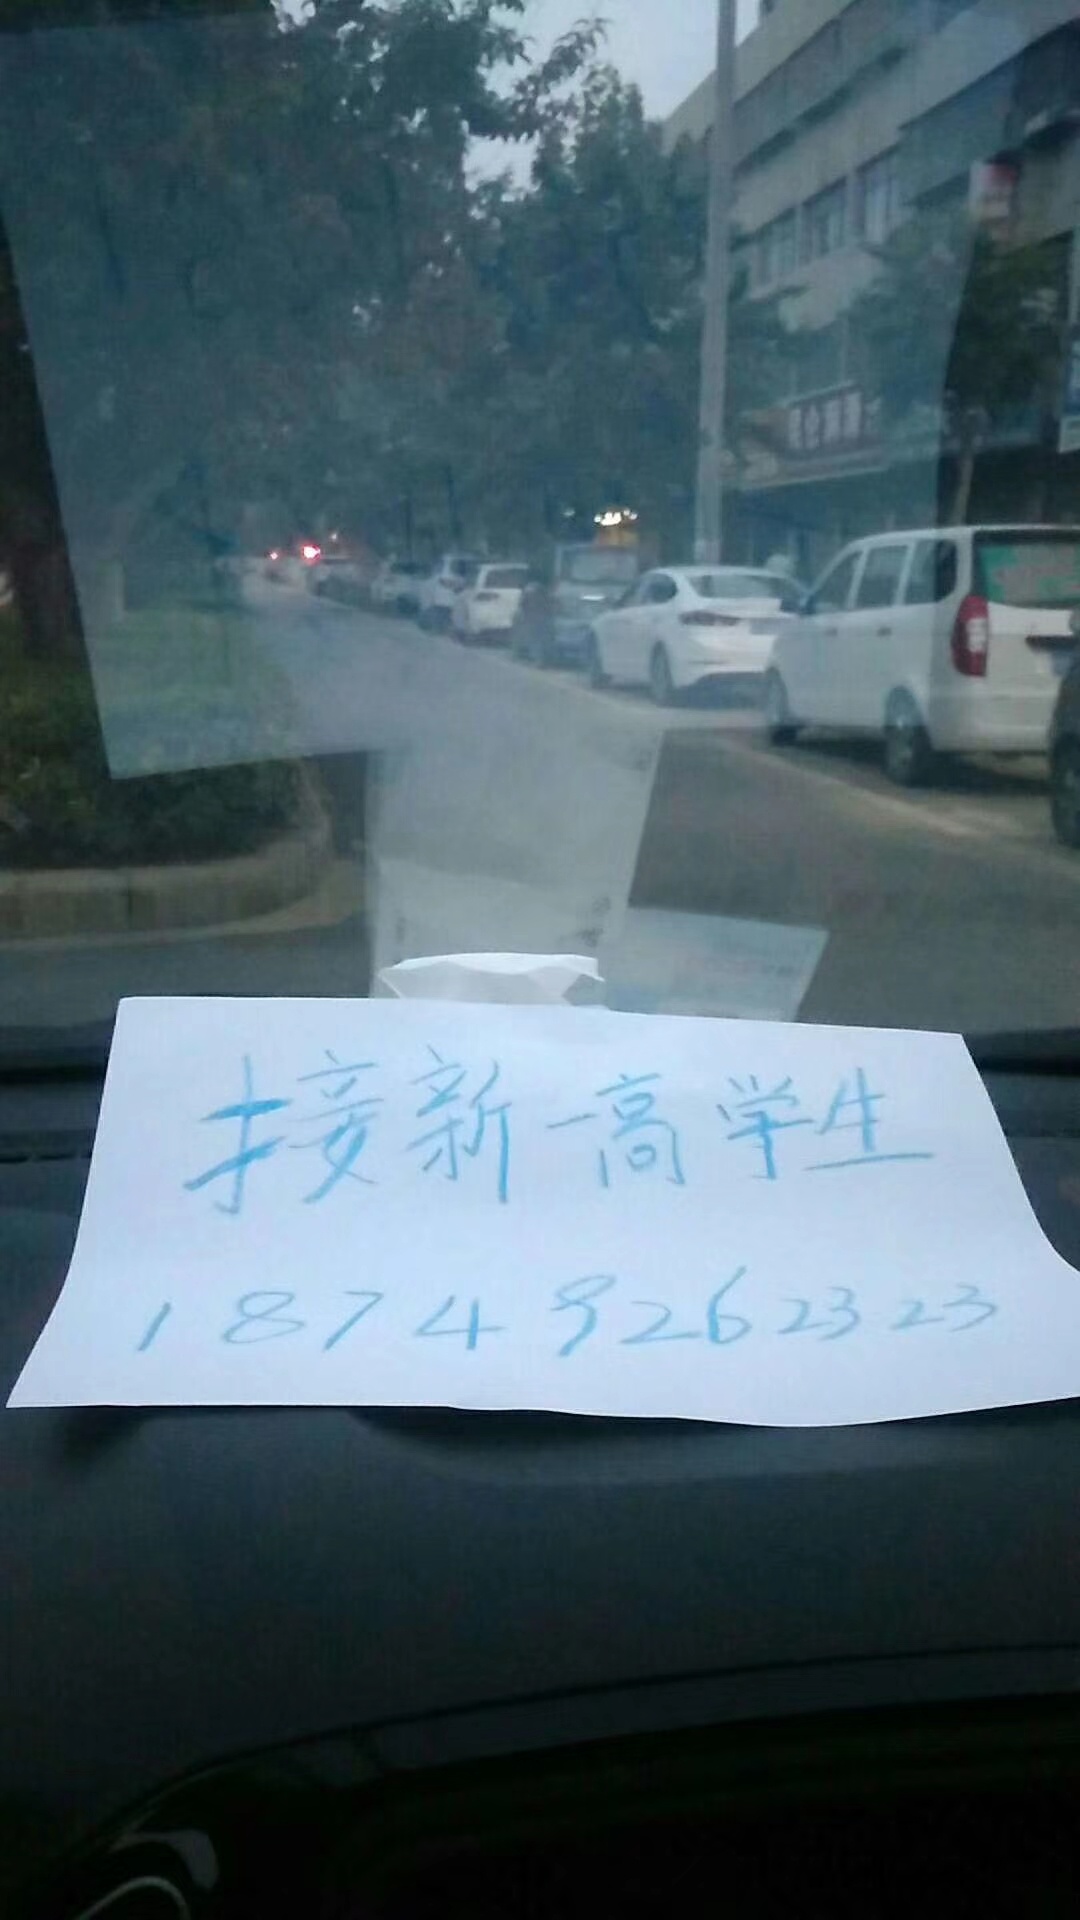 接新一高学生
18749262323